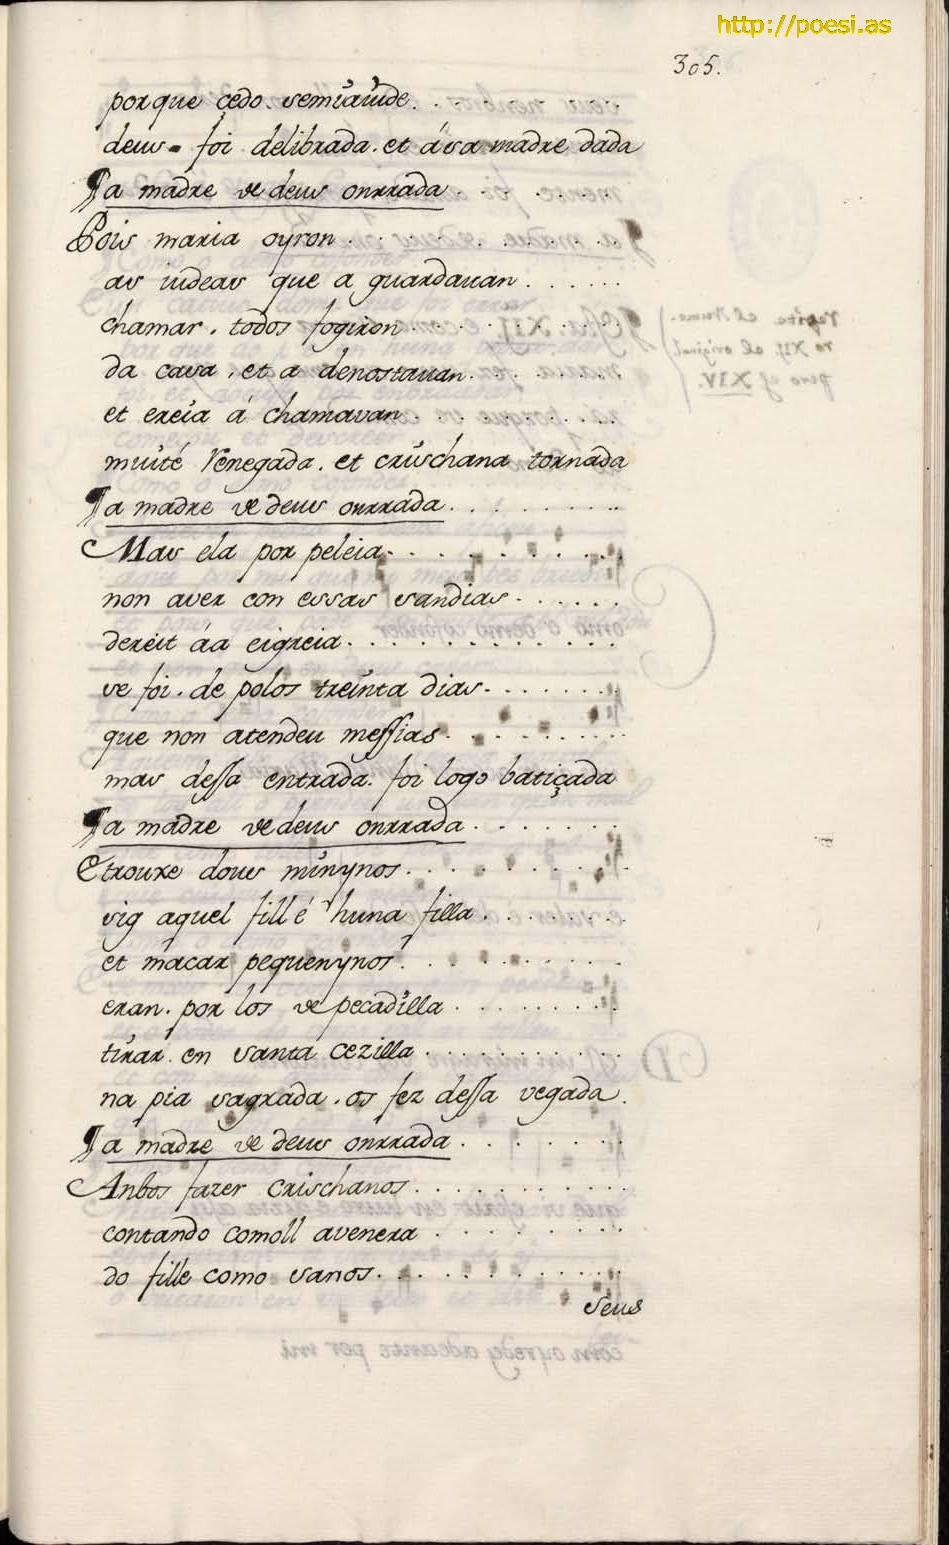 http://poesi.as
305.
porque çedo. semiauide. . .
deus. foi delibrada. et á sa madre dada
¶ a madre de deus onrrada . . .
Pois maria oyron . . . . .
as iudeas que a guardauan . . . . . .
chamar. todos fogiron . . . . .
da casa. et a denostauan . . . . .
et ereia á chamavan . . . . .
muité Renegada. et crischana tornada
¶ a madre de deus onrrada . . . . . . . .
Mas ela por peleia . . . . . . . .
non aver con essas sandias . . . . . .
dereit áa eigreia . . . . . . . . . .
se foi. de polos treinta dias . . . . . .
que non atendeu messias . . . . . . . .
mas dessa entrada. foi logo batiçada
¶ a madre de deus onrrada . . . . . .
E trouxe dous minynos . . . . . . . .
sig aquel fill é huna filla . . . . . .
et macar pequenynos . . . . . . . .
eran. por los de pecadilla . . . . . . .
tirar. en santa cezilla . . . . . . . .
na pia sagrada. os fez dessa vegada.
¶ a madre de deus onrrada . . . . . .
Anbos fazer crischanos . . . . . . . . .
contando comoll avenera . . . . . . . .
do fille como sanos . . . . . . . . . .
Seus